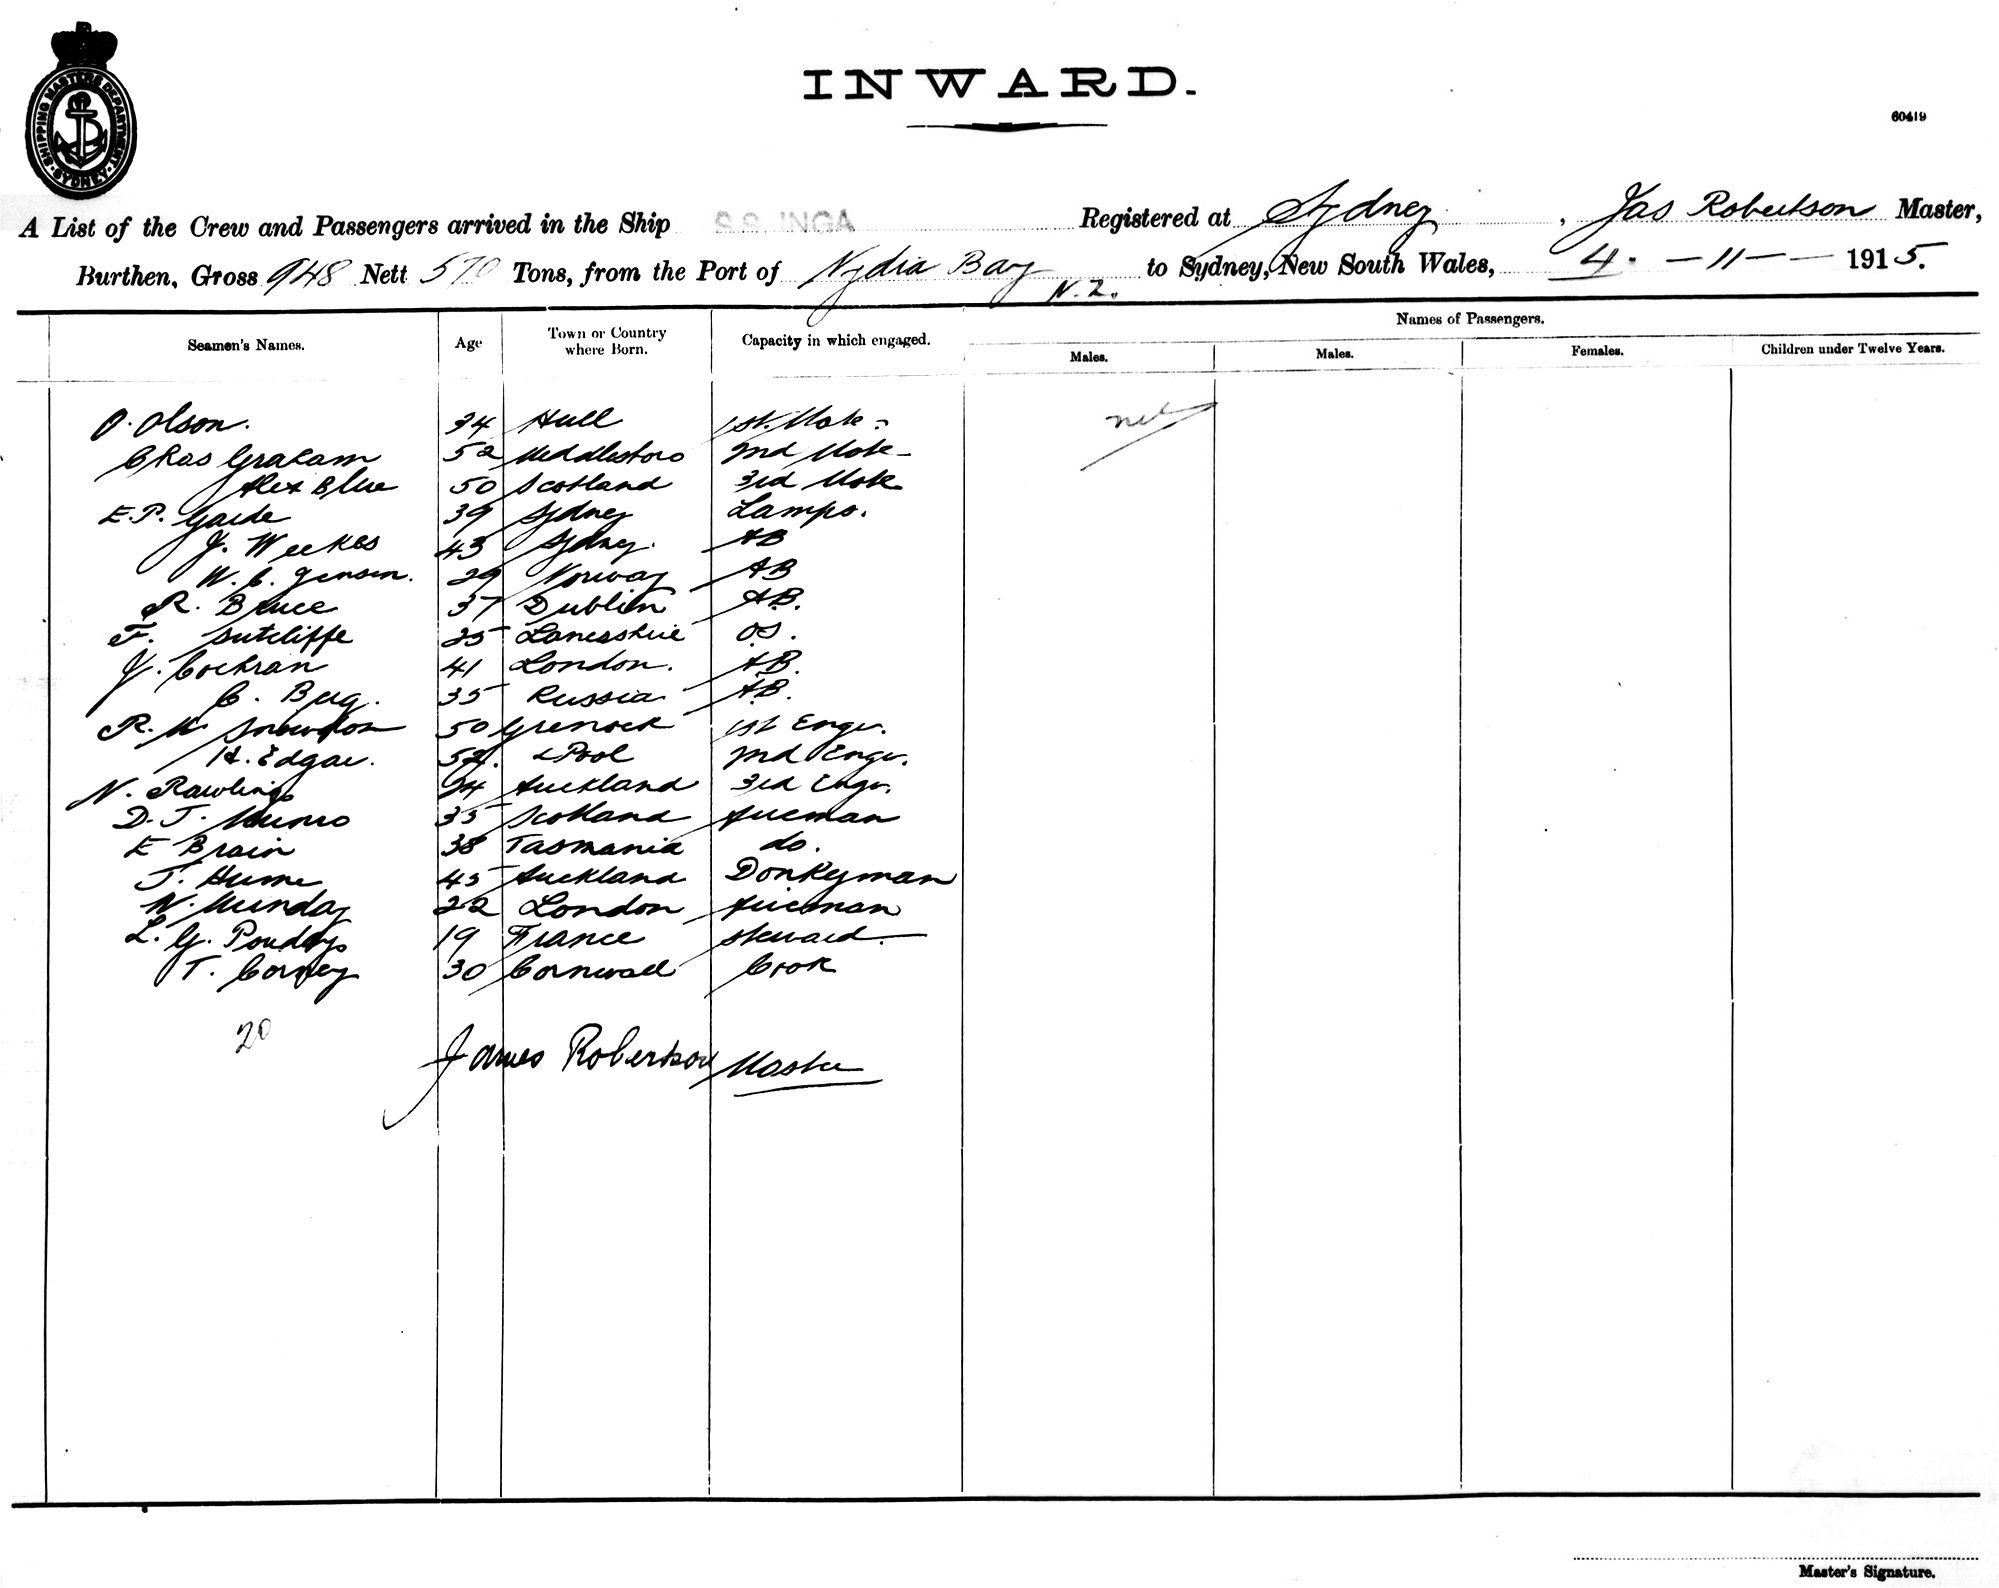 SHIPPING MASTERS DEPARTMENT
SYDNEY
INWARD.
60419
A List of the Crew and Passengers arrived in the Ship S.S. INGA Registered at Sydney, Jas Robertson Master,
Burthen, Gross 948 Nett 570 Tons, from the Port of Nydia Bay N.Z. to Sydney, New South Wales, 4 - 11 - 1915.
Names of Passengers.
Seamen's Names. Age Town or Country where Born. Capacity in which engaged. Males. Males. Females. Children under Twelve Years.
O. Olson. 34 Hull 1st Mate nil
Chas Graham 52 Middlesboro 2nd Mate
Alex Blue 50 Scotland 3rd Mate
E.P. Garde 39 Sydney Lamps.
J. Weekes 43 Sydney. AB
W. C. Jensen. 29 Norway AB
R. Bruce 37 Dublin A.B.
F. Sutcliffe 25 Lancashire O.S.
J. Cochran 41 London. A.B.
C. Berg. 35 Russia A.B.
R. Snowdon 50 Grenock 1st Engr.
H. Edgar. 52. L Pool 2nd Engr.
N. Rawlings 24 Auckland 3rd Engr.
D. J. Munro 35 Scotland Fireman
E Brain 38 Tasmania do.
J. Hume 45 Auckland Donkeyman
W. Munday 22 London Fireman
L. G. 19 France Steward.
T. Corney 30 Cornwall Cook
20
James Robertson Master
Master's Signature.